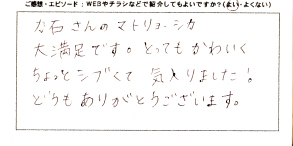 ご感想・エピソード：WEBやチラシなどで紹介してもよいですか？(よい・よくない)
力石さんのマトリョーシカ
大満足です。とってもかわいく
ちょっとシブくて 気入りました！
どうもありがとうございます。